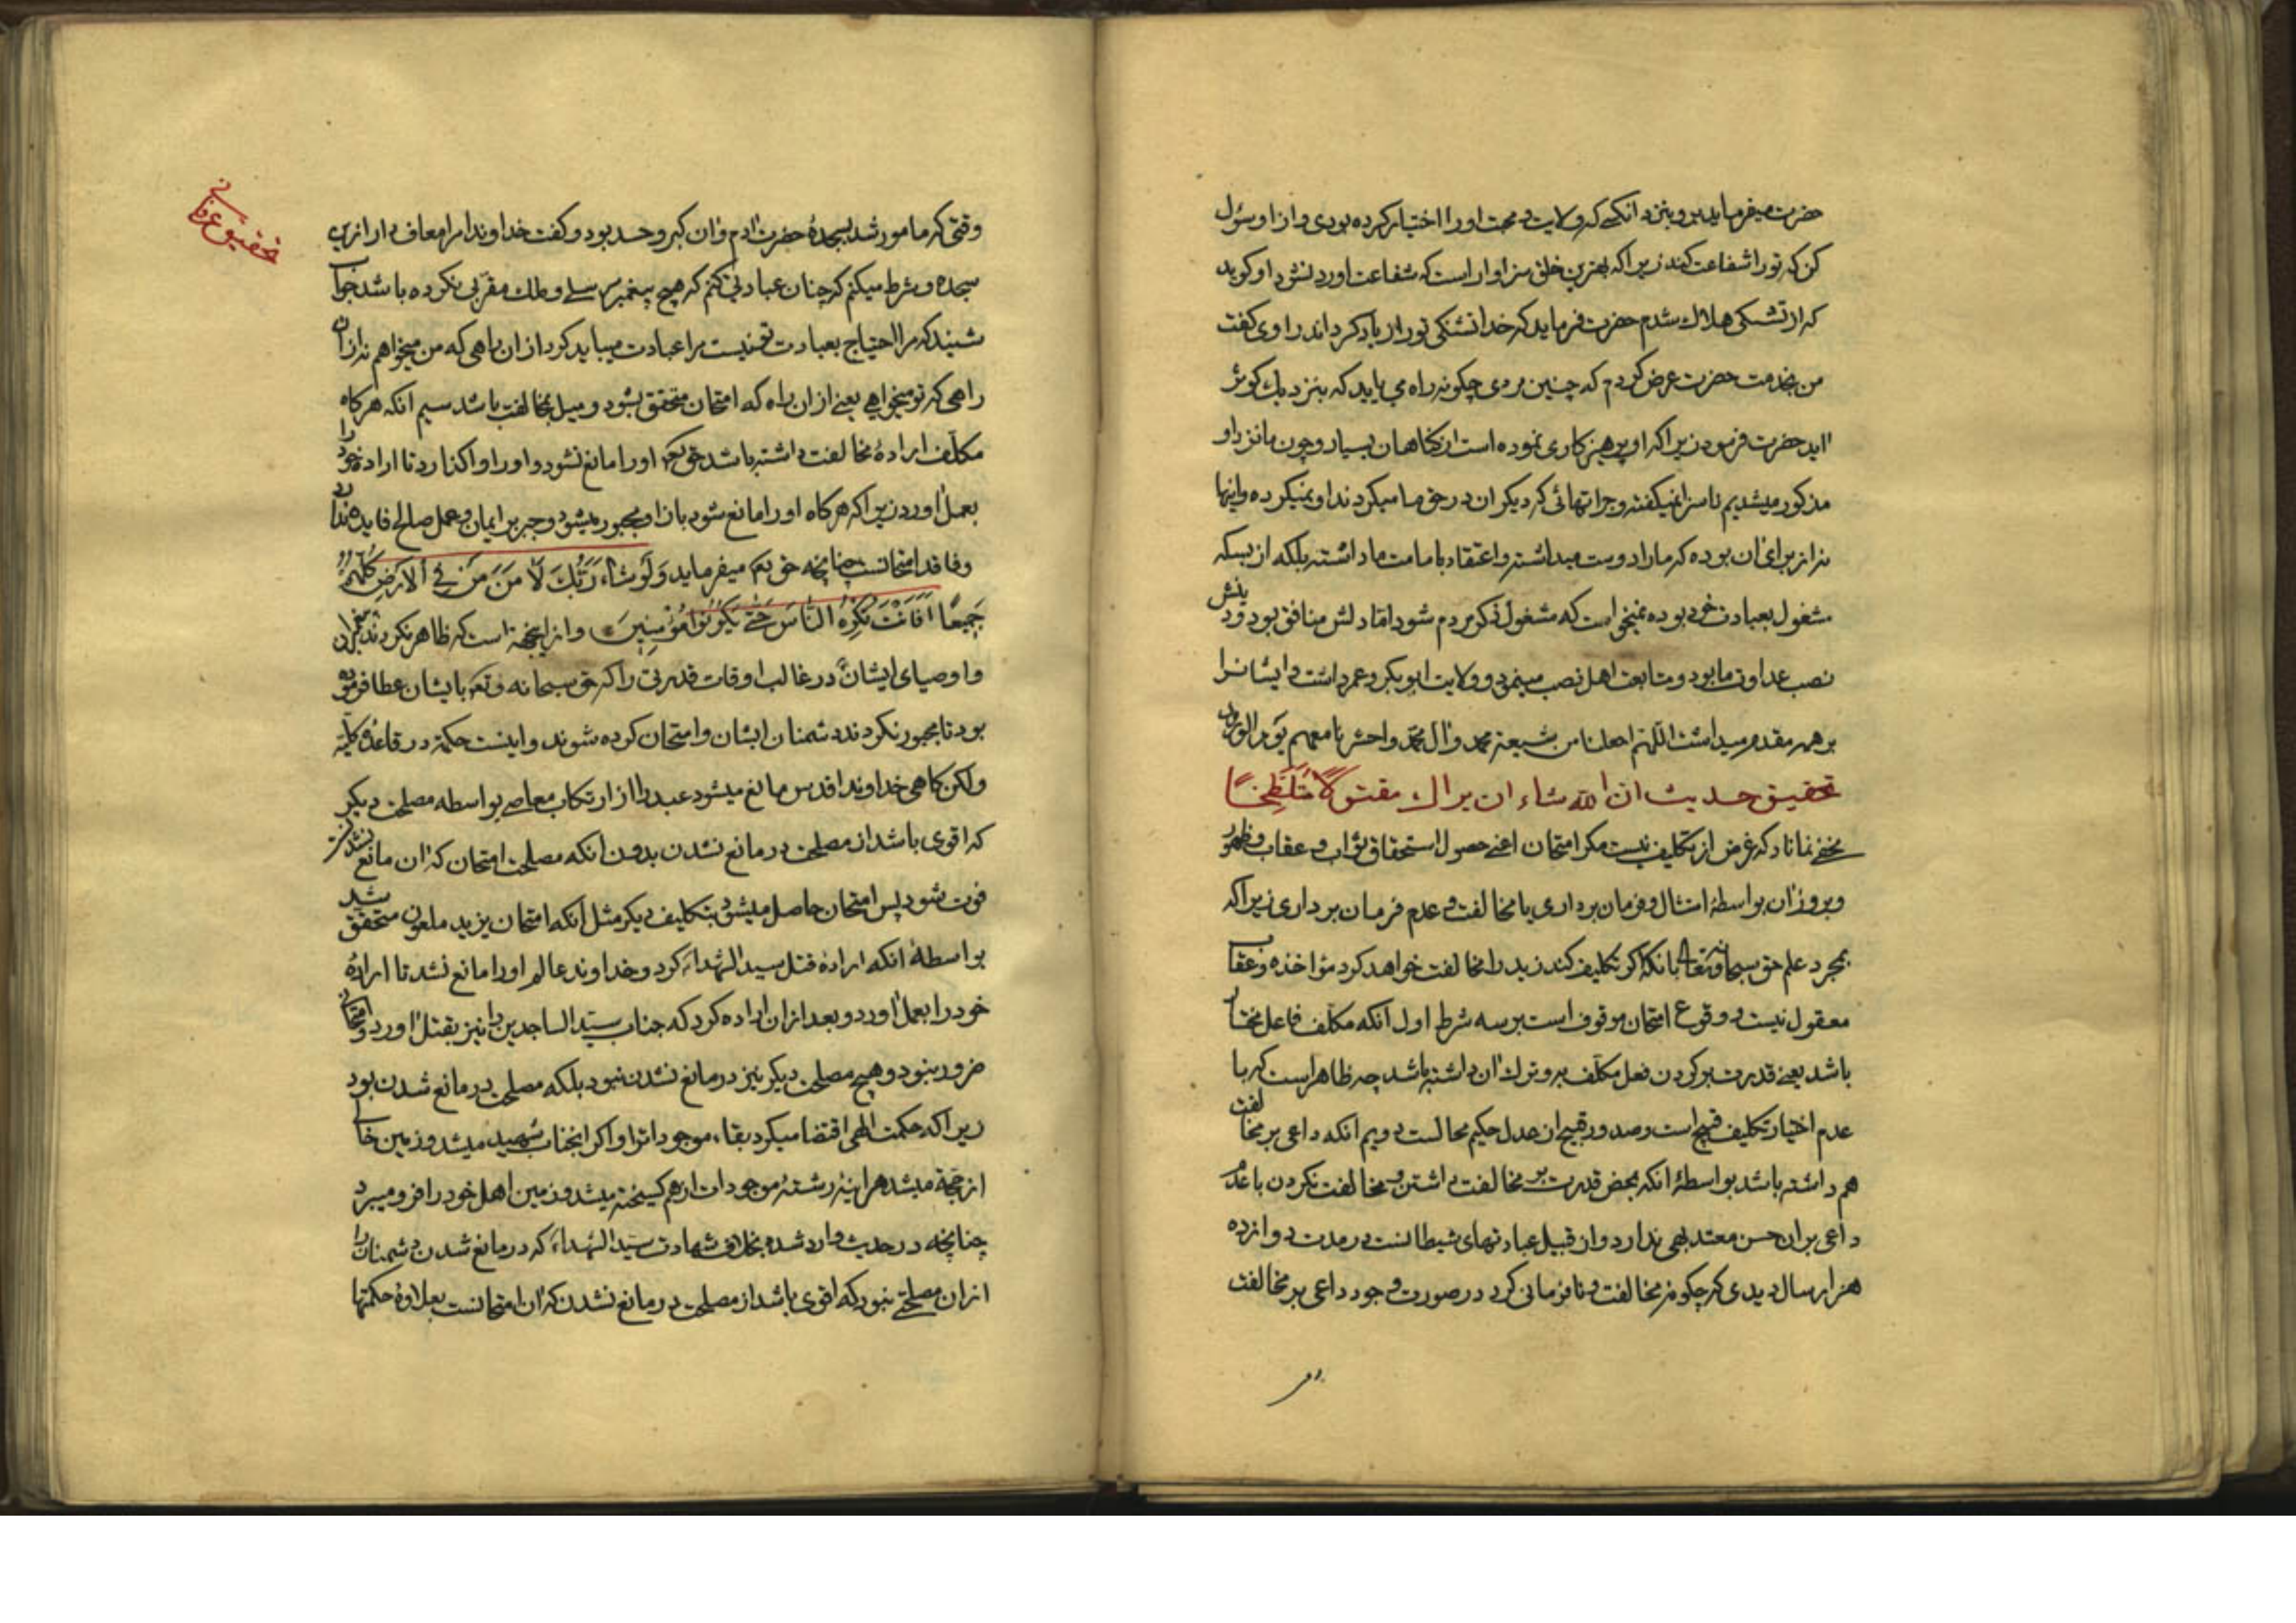 حضرت میفرماید برو بنزد انکسے که ولایت و محبت او را اختیار کرده بودی و از او سؤل
کن که تو را شفاعت کند زیرا که بهترین خلق سزاوار است که شفاعت او رد نشود او کوید
که از تشنکی هلاک شدم حضرت فرماید که خدا تشنکی تو را زیاد کرداند راوی کفت
من بخدمت حضرت عرض کردم که چنین مردی چکونه راه می یابد که بنزدیک کوثر
اید حضرت فرمود زیرا که او پرهیزکاری نموده است از کناهان بسیار و چون ما نزد او
مذکور میشدیم ناسزا نمیکفته و جراتهائی که دیکران در حق ما میکردند او نمیکرده و اینها
نه از برای ان بوده که ما را دوست میداشته و اعتقاد بامامت ما داشته بلکه از بسکه
مشغول بعبادت خود بوده نمیخواست که مشغول ذکر مردم شود اما دلش منافق بود و دینش
نصب عداوت ما بود و متابعت اهل نصب مینمود و ولایت ابوبکر و عمر داشت و ایشانرا
بر همه مقدم میداشت اللهم اجعلنا من شیعة محمد و ال محمد و احشرنا معهم یوم الورود
تحقیق حدیث ان الله شاء ان یراک مقتولا متلطخا
مخفے نماناد که غرض از تکلیف نیست مکر امتحان اعنے حصول استحقاق ثواب و عقاب و ظهور
و بروز ان بواسطهٔ امتثال و فرمان برداری یا مخالفت و عدم فرمان برداری زیرا که
بمجرد علم حق سبحانه و تعالی بانکه اکر تکلیف کند زید را مخالفت خواهد کرد مؤاخذه و عقاب
معقول نیست و وقوع امتحان موقوف است بر سه شرط اول آنکه مکلف فاعل مختار
باشد یعنے قدرت بر کردن فعل مکلف به و ترک ان داشته باشد چه ظاهر است که با
عدم اختیار تکلیف قبیح است و صدور قبیح از عدل حکیم محالست دویم انکه داعی بر مخالفت
هم داشته باشد بواسطهٔ انکه بمحض قدرت بر مخالفت داشتن و مخالفت نکردن با عدم
داعی بران حسن معتد بهی ندارد و از قبیل عبادتهای شیطانست در مدت دوازده
هزار سال دیدی که چکونه مخالفت و نافرمانی کرد در صورت وجود داعی بر مخالفت
تحقیق عرفانی
وقتی که مامور شد بسجدهٔ حضرت ادم و ان کبر و حسد بود و کفت خداوندا مرا معاف دار ازین
سجده و شرط میکنم که چنان عبادتی کنم که هیچ پیغمبر مرسلے و ملک مقربی نکرده باشد جواب
شنید که مرا احتیاج بعبادت تو نیست مرا عبادت میباید کرد از ان راهی که من میخواهم نه از ان
راهی که تو میخواهی یعنے از ان راه که امتحان متحقق بشود و میل بمخالفت باشد سیم انکه هرکاه
مکلف ارادهٔ مخالفت داشته باشد حق تعالی او را مانع نشود و او را واکذارد تا ارادهٔ خود را
بعمل اورد زیرا که هرکاه او را مانع شود باز او مجبور میشود و جبر بر ایمان و عمل صالح فایده ندارد
و فاقد امتحانست چنانچه حق تعالی میفرماید وَلَوْ شَاءَ رَبُّكَ لَآمَنَ مَنْ فِي الْأَرْضِ كُلُّهُمْ
جَمِيعًا أَفَأَنْتَ تُكْرِهُ النَّاسَ حَتَّى يَكُونُوا مُؤْمِنِينَ و ازینجهة است که ظاهر نکردند پیغمبران
و اوصیای ایشان در غالب اوقات قدرتی را که حق سبحانه و تعالی بایشان عطا فرموده
بود تا مجبور نکردند دشمنان ایشان و امتحان کرده شوند و اینست حکمة در قاعدهٔ کلیه
ولکن کاهی خداوند اقدس مانع میشود عبد را از ارتکاب معاصے بواسطه مصلحت دیکر
که اقوی باشد از مصلحت در مانع نشدن بدون انکه مصلحت امتحان که ان مانع نشدنست
فوت شود پس امتحان حاصل میشود بتکلیف دیکر مثل آنکه امتحان یزید ملعون متحقق شد
بواسطهٔ انکه ارادهٔ قتل سید الشهداء کرد و خداوند عالم او را مانع نشد تا ارادهٔ
خود را بعمل اورد و بعد از ان اراده کرد که جناب سید الساجدین را نیز بقتل اورد و امتحان
ضرور نبود و هیچ مصلحت دیکر نیز در مانع نشدن نبود بلکه مصلحت در مانع شدن بود
زیرا که حکمت الهی اقتضا میکرد بقاء موجودات را و اکر انجناب شهید میشد و زمین خالی
از حجة میشد هراینه رشتهٔ موجودات از هم کسیخته میشد و زمین اهل خود را فرو میبرد
چنانچه در حدیث وارد شده بخلاف شهادت سید الشهداء که در مانع شدن دشمنان را
از ان مصلحتے نبود که اقوی باشد از مصلحت در مانع نشدن که ان امتحانست بعلاوهٔ حکمتها